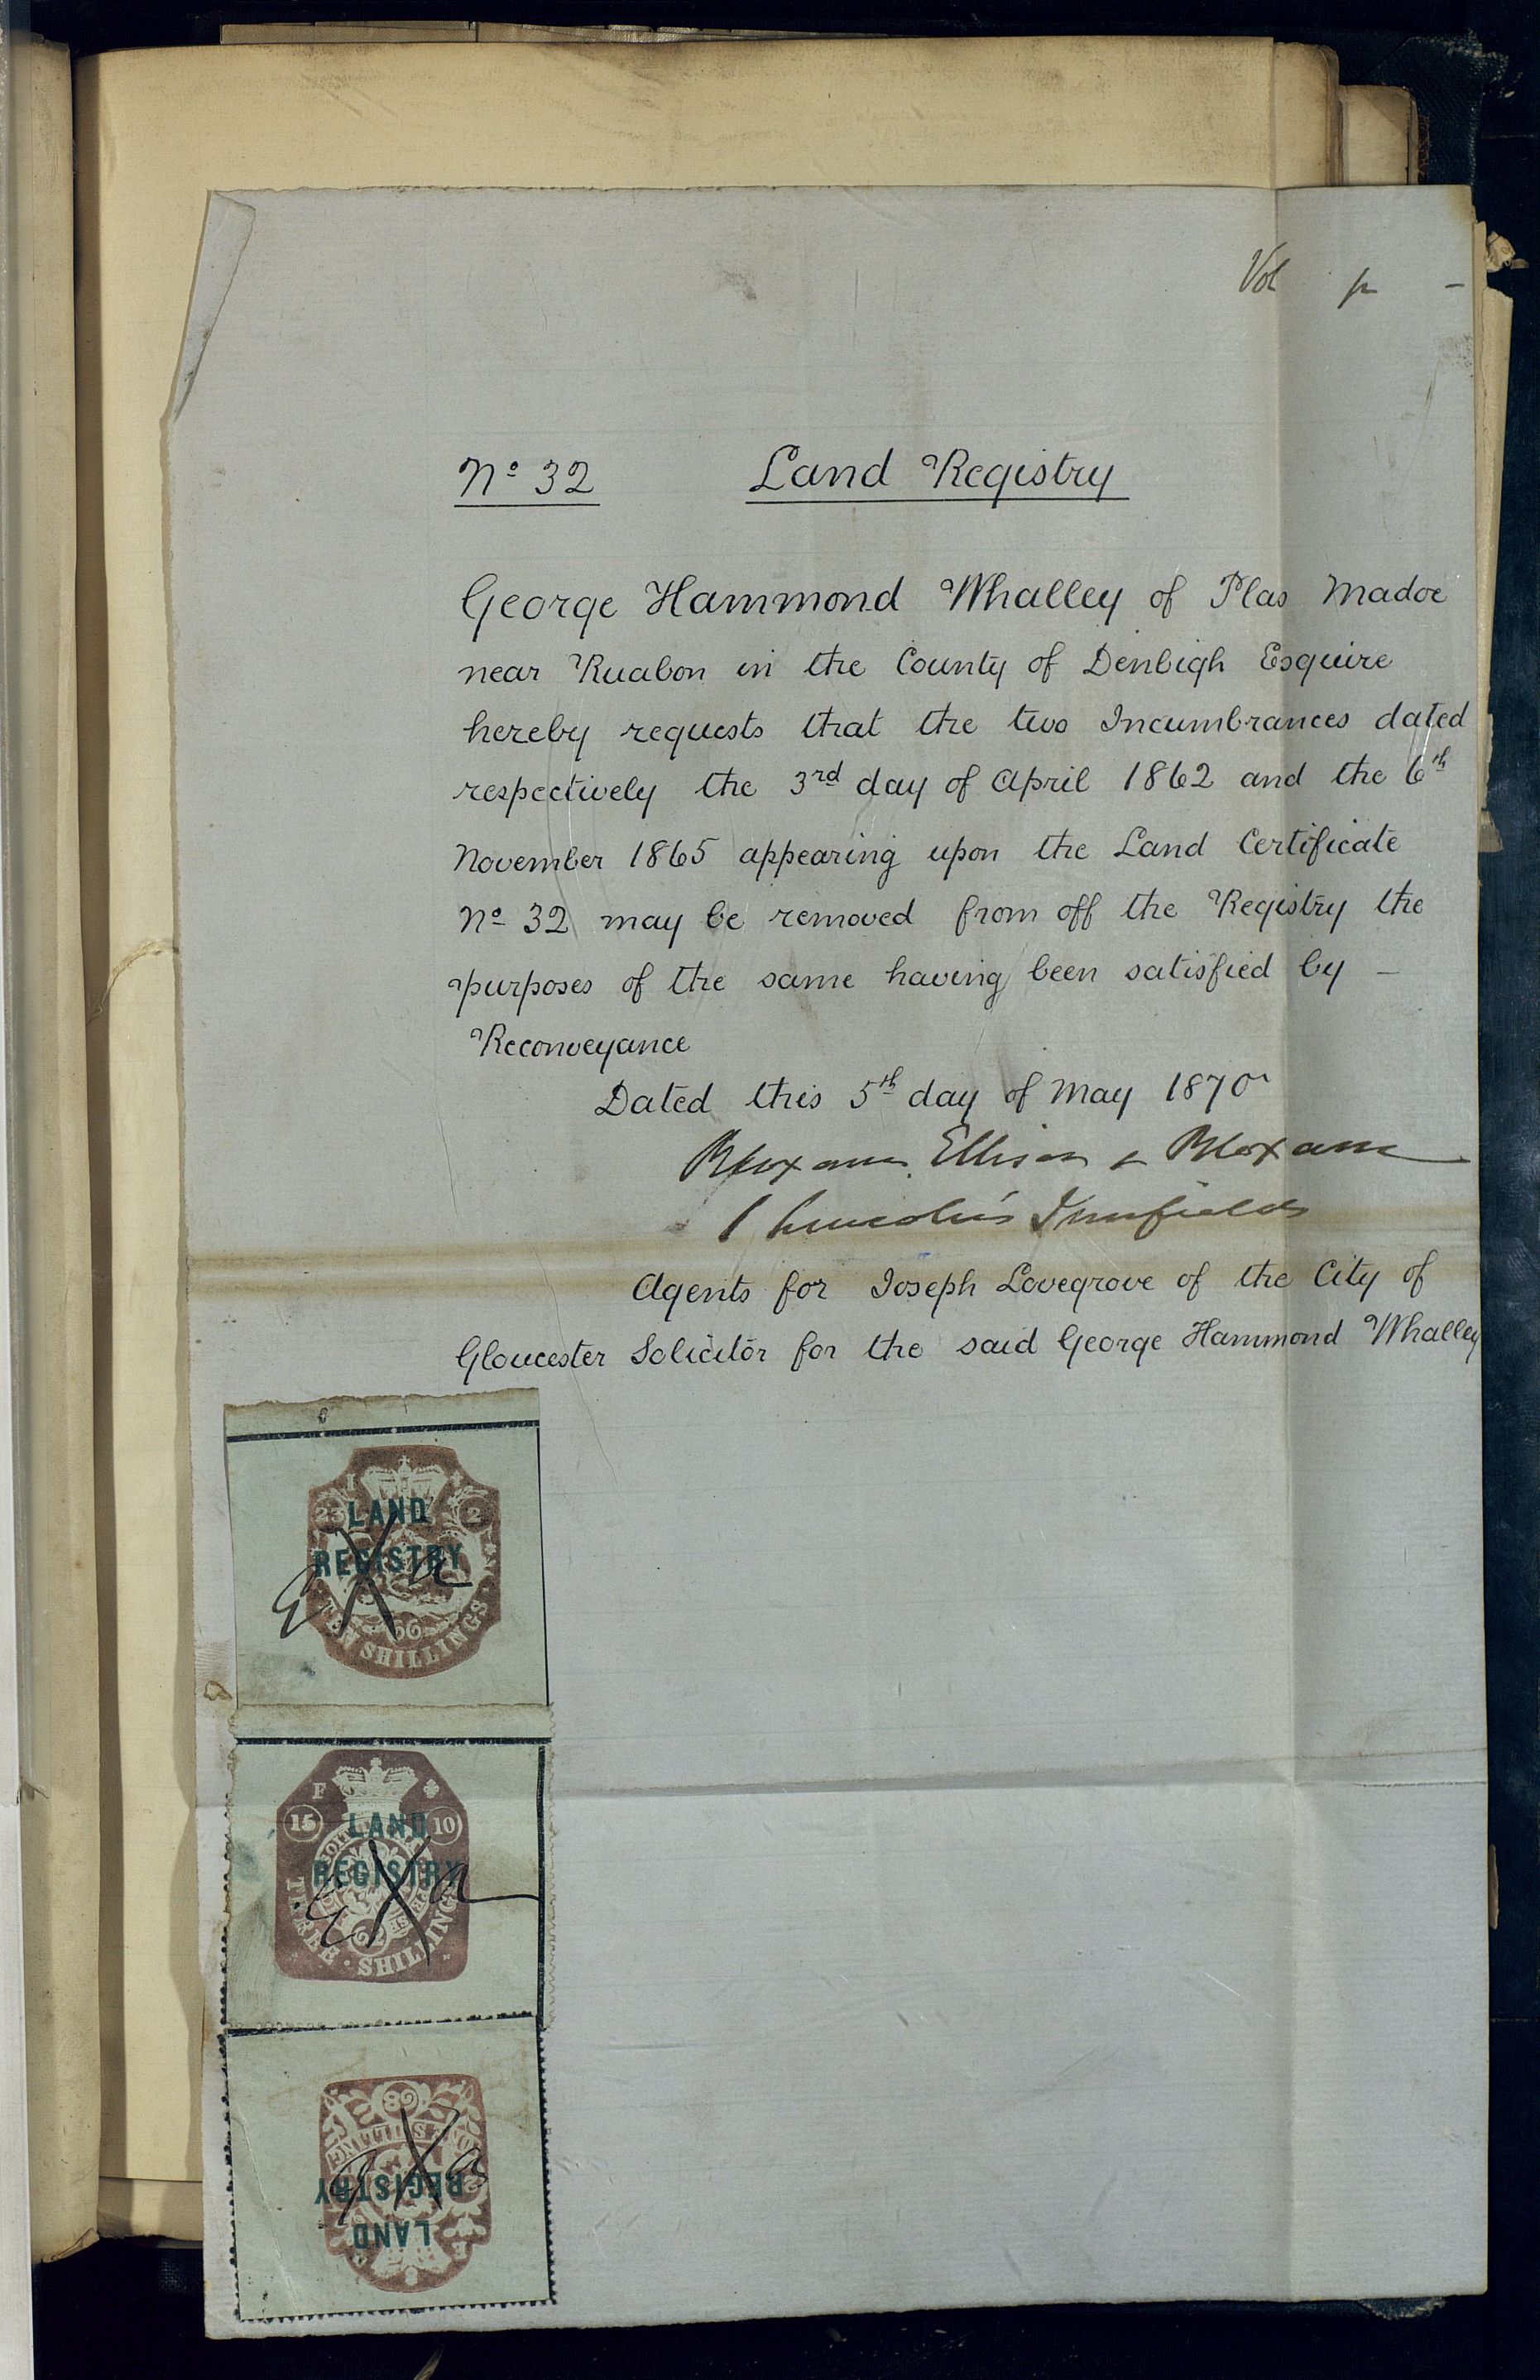 Vol p -
No 32 Land Registry
George Hammond Whalley of Plas Madoc
near Ruabon in the County of Denbigh Esquire
hereby requests that the two Incumbrances dated
respectively the 3rd day of April 1862 and the 6th
November 1865 appearing upon the Land Certificate
No 32 may be removed from off the Registry the
purposes of the same having been satisfied by -
Reconveyance
Dated this 5th day of May 1870
Bloxam, Ellison & Bloxam
1 Lincoln's Innfields
Agents for Joseph Lovegrove of the City of
Gloucester Solicitor for the said George Hammond Whalley
I
23 2
LAND
REGISTRY
66
TEN SHILLINGS
F
15 10
LAND
REGISTRY
62
THREE SHILLINGS
68
ONE SHILLING
REGISTRY
LAND